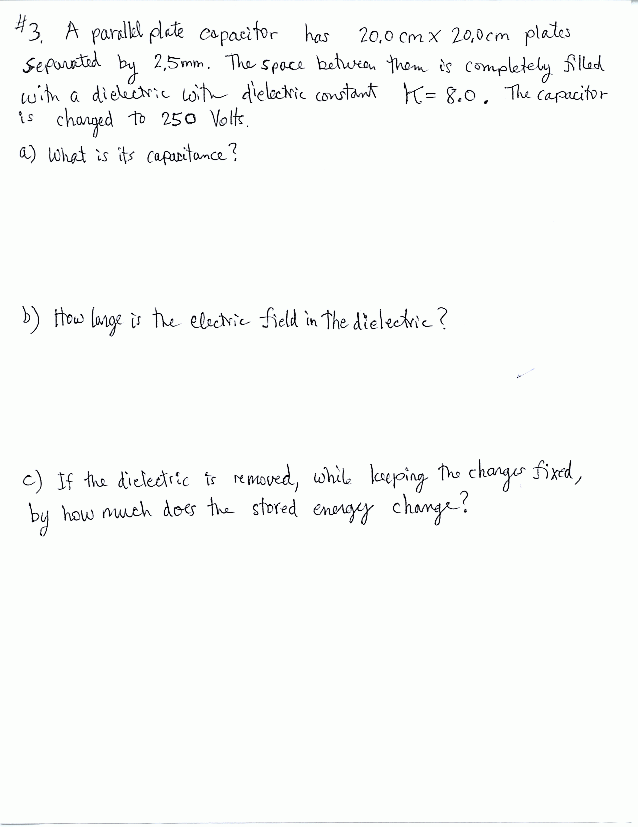 #3. A parallel plate capacitor has 20.0 cm x 20.0 cm plates
separated by 2.5mm. The space between them is completely filled
with a dielectric with dielectric constant K = 8.0. The capacitor
is charged to 250 Volts.
a) What is its capacitance?
b) How large is the electric field in the dielectric?
c) If the dielectric is removed, while keeping the charges fixed,
by how much does the stored energy change?